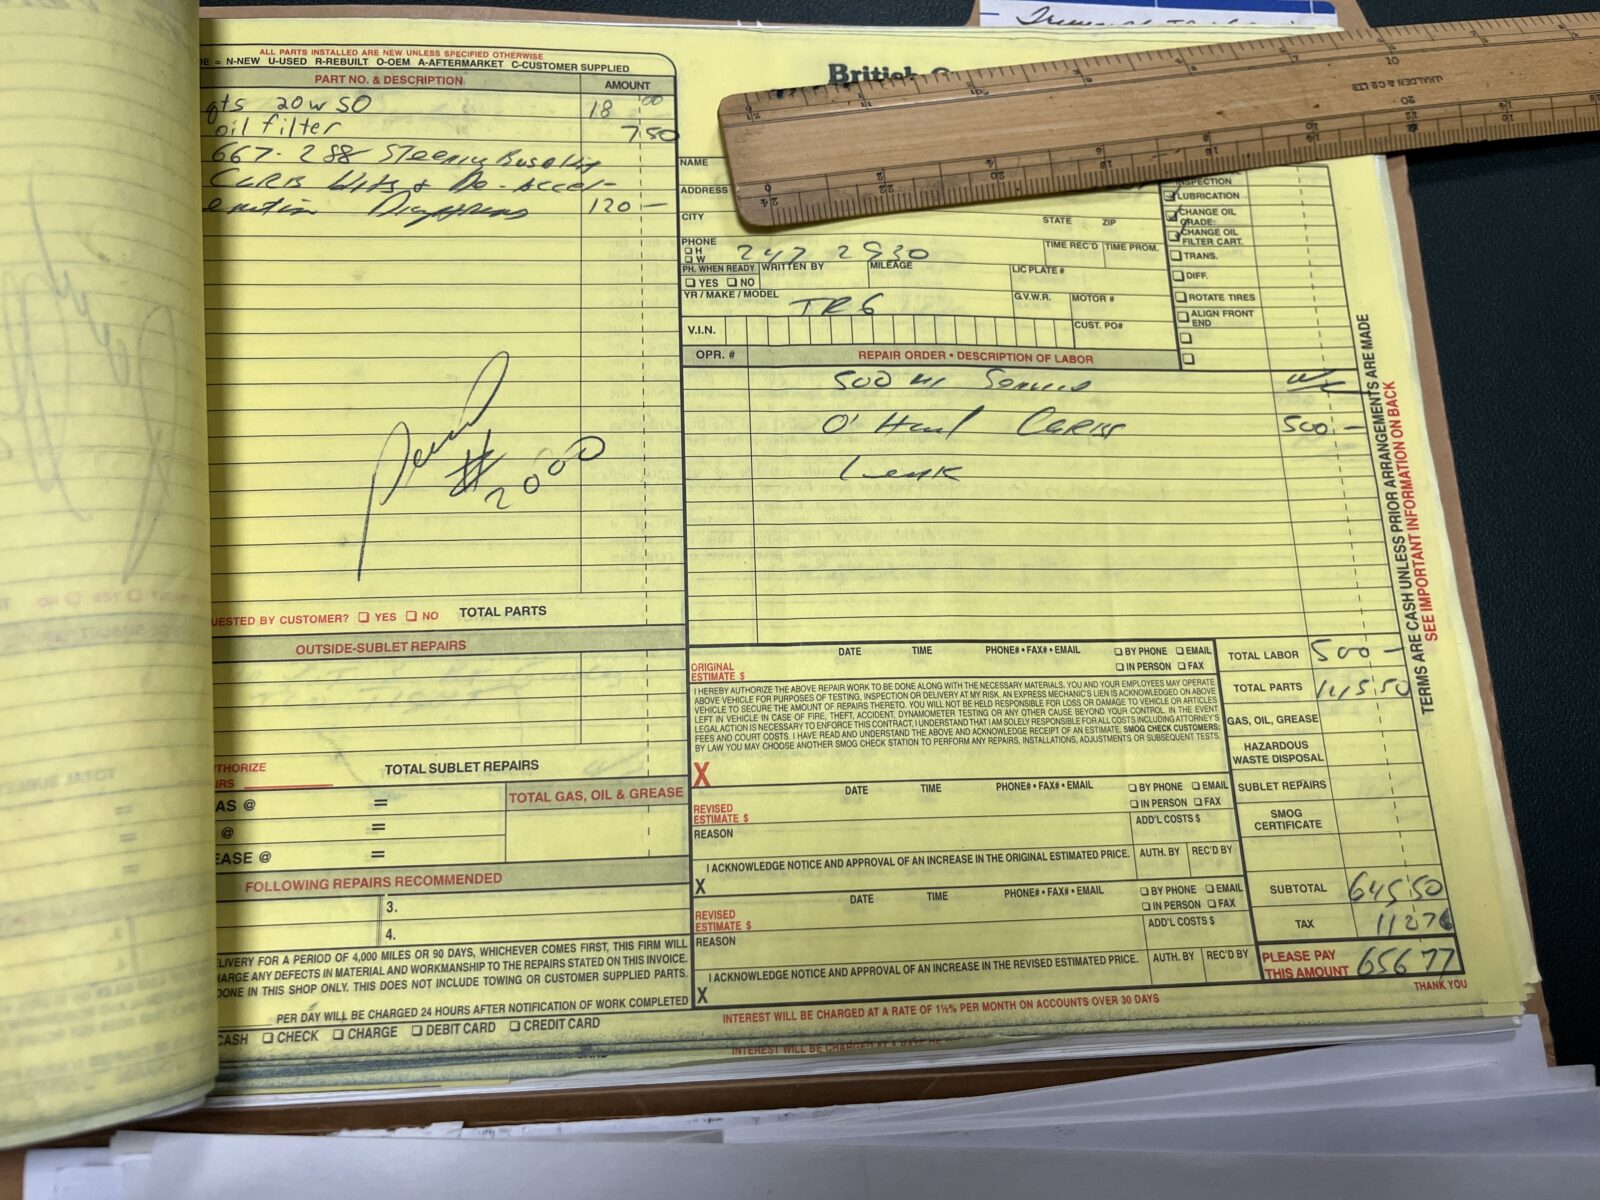 ALL PARTS INSTALLED ARE NEW UNLESS SPECIFIED OTHERWISE
N-NEW U-USED R-REBUILT O-OEM A-AFTERMARKET C-CUSTOMER SUPPLIED
PART NO. & DESCRIPTION AMOUNT
qts 20w50 18 00
oil filter 7 50
667-288 Steering
CARB Kits & De-Accel-
120 —
Paid
#2000
UESTED BY CUSTOMER? YES NO TOTAL PARTS
OUTSIDE-SUBLET REPAIRS
THORIZE
IRS
TOTAL SUBLET REPAIRS
AS @ =
TOTAL GAS, OIL & GREASE
@ =
EASE @ =
FOLLOWING REPAIRS RECOMMENDED
3.
4.
LIVERY FOR A PERIOD OF 4,000 MILES OR 90 DAYS, WHICHEVER COMES FIRST, THIS FIRM WILL
ARGE ANY DEFECTS IN MATERIAL AND WORKMANSHIP TO THE REPAIRS STATED ON THIS INVOICE.
DONE IN THIS SHOP ONLY. THIS DOES NOT INCLUDE TOWING OR CUSTOMER SUPPLIED PARTS,
PER DAY WILL BE CHARGED 24 HOURS AFTER NOTIFICATION OF WORK COMPLETED
CASH CHECK CHARGE DEBIT CARD CREDIT CARD
British
J.HALDEN & CO LTD
NAME
ADDRESS
CITY STATE ZIP
PHONE
H
W
247 2930
TIME REC'D TIME PROM.
PH. WHEN READY WRITTEN BY MILEAGE LIC PLATE #
YES NO
YR / MAKE / MODEL TR6 G.V.W.R. MOTOR #
V.I.N. CUST. PO#
INSPECTION
LUBRICATION
CHANGE OIL
GRADE:
CHANGE OIL
FILTER CART.
TRANS.
DIFF.
ROTATE TIRES
ALIGN FRONT
END
OPR. # REPAIR ORDER • DESCRIPTION OF LABOR
500 mi Service
O'Haul CARBS 500 —
Leak
ORIGINAL
ESTIMATE $
DATE TIME PHONE# • FAX# • EMAIL BY PHONE EMAIL
IN PERSON FAX
I HEREBY AUTHORIZE THE ABOVE REPAIR WORK TO BE DONE ALONG WITH THE NECESSARY MATERIALS. YOU AND YOUR EMPLOYEES MAY OPERATE
ABOVE VEHICLE FOR PURPOSES OF TESTING, INSPECTION OR DELIVERY AT MY RISK. AN EXPRESS MECHANIC'S LIEN IS ACKNOWLEDGED ON ABOVE
VEHICLE TO SECURE THE AMOUNT OF REPAIRS THERETO. YOU WILL NOT BE HELD RESPONSIBLE FOR LOSS OR DAMAGE TO VEHICLE OR ARTICLES
LEFT IN VEHICLE IN CASE OF FIRE, THEFT, ACCIDENT, DYNAMOMETER TESTING OR ANY OTHER CAUSE BEYOND YOUR CONTROL. IN THE EVENT
LEGAL ACTION IS NECESSARY TO ENFORCE THIS CONTRACT, I UNDERSTAND THAT I AM SOLELY RESPONSIBLE FOR ALL COSTS INCLUDING ATTORNEY'S
FEES AND COURT COSTS. I HAVE READ AND UNDERSTAND THE ABOVE AND ACKNOWLEDGE RECEIPT OF AN ESTIMATE. SMOG CHECK CUSTOMERS:
BY LAW YOU MAY CHOOSE ANOTHER SMOG CHECK STATION TO PERFORM ANY REPAIRS, INSTALLATIONS, ADJUSTMENTS OR SUBSEQUENT TESTS.
X
REVISED
ESTIMATE $
DATE TIME PHONE# • FAX# • EMAIL BY PHONE EMAIL
IN PERSON FAX
REASON ADD'L COSTS $
I ACKNOWLEDGE NOTICE AND APPROVAL OF AN INCREASE IN THE ORIGINAL ESTIMATED PRICE. AUTH. BY REC'D BY
X
REVISED
ESTIMATE $
DATE TIME PHONE# • FAX# • EMAIL BY PHONE EMAIL
IN PERSON FAX
REASON ADD'L COSTS $
I ACKNOWLEDGE NOTICE AND APPROVAL OF AN INCREASE IN THE REVISED ESTIMATED PRICE. AUTH. BY REC'D BY
X
TOTAL LABOR 500 —
TOTAL PARTS 145.50
GAS, OIL, GREASE
HAZARDOUS
WASTE DISPOSAL
SUBLET REPAIRS
SMOG
CERTIFICATE
SUBTOTAL 645 50
TAX 11 27
PLEASE PAY
THIS AMOUNT 656 77
THANK YOU
INTEREST WILL BE CHARGED AT A RATE OF 1½% PER MONTH ON ACCOUNTS OVER 30 DAYS
TERMS ARE CASH UNLESS PRIOR ARRANGEMENTS ARE MADE
SEE IMPORTANT INFORMATION ON BACK